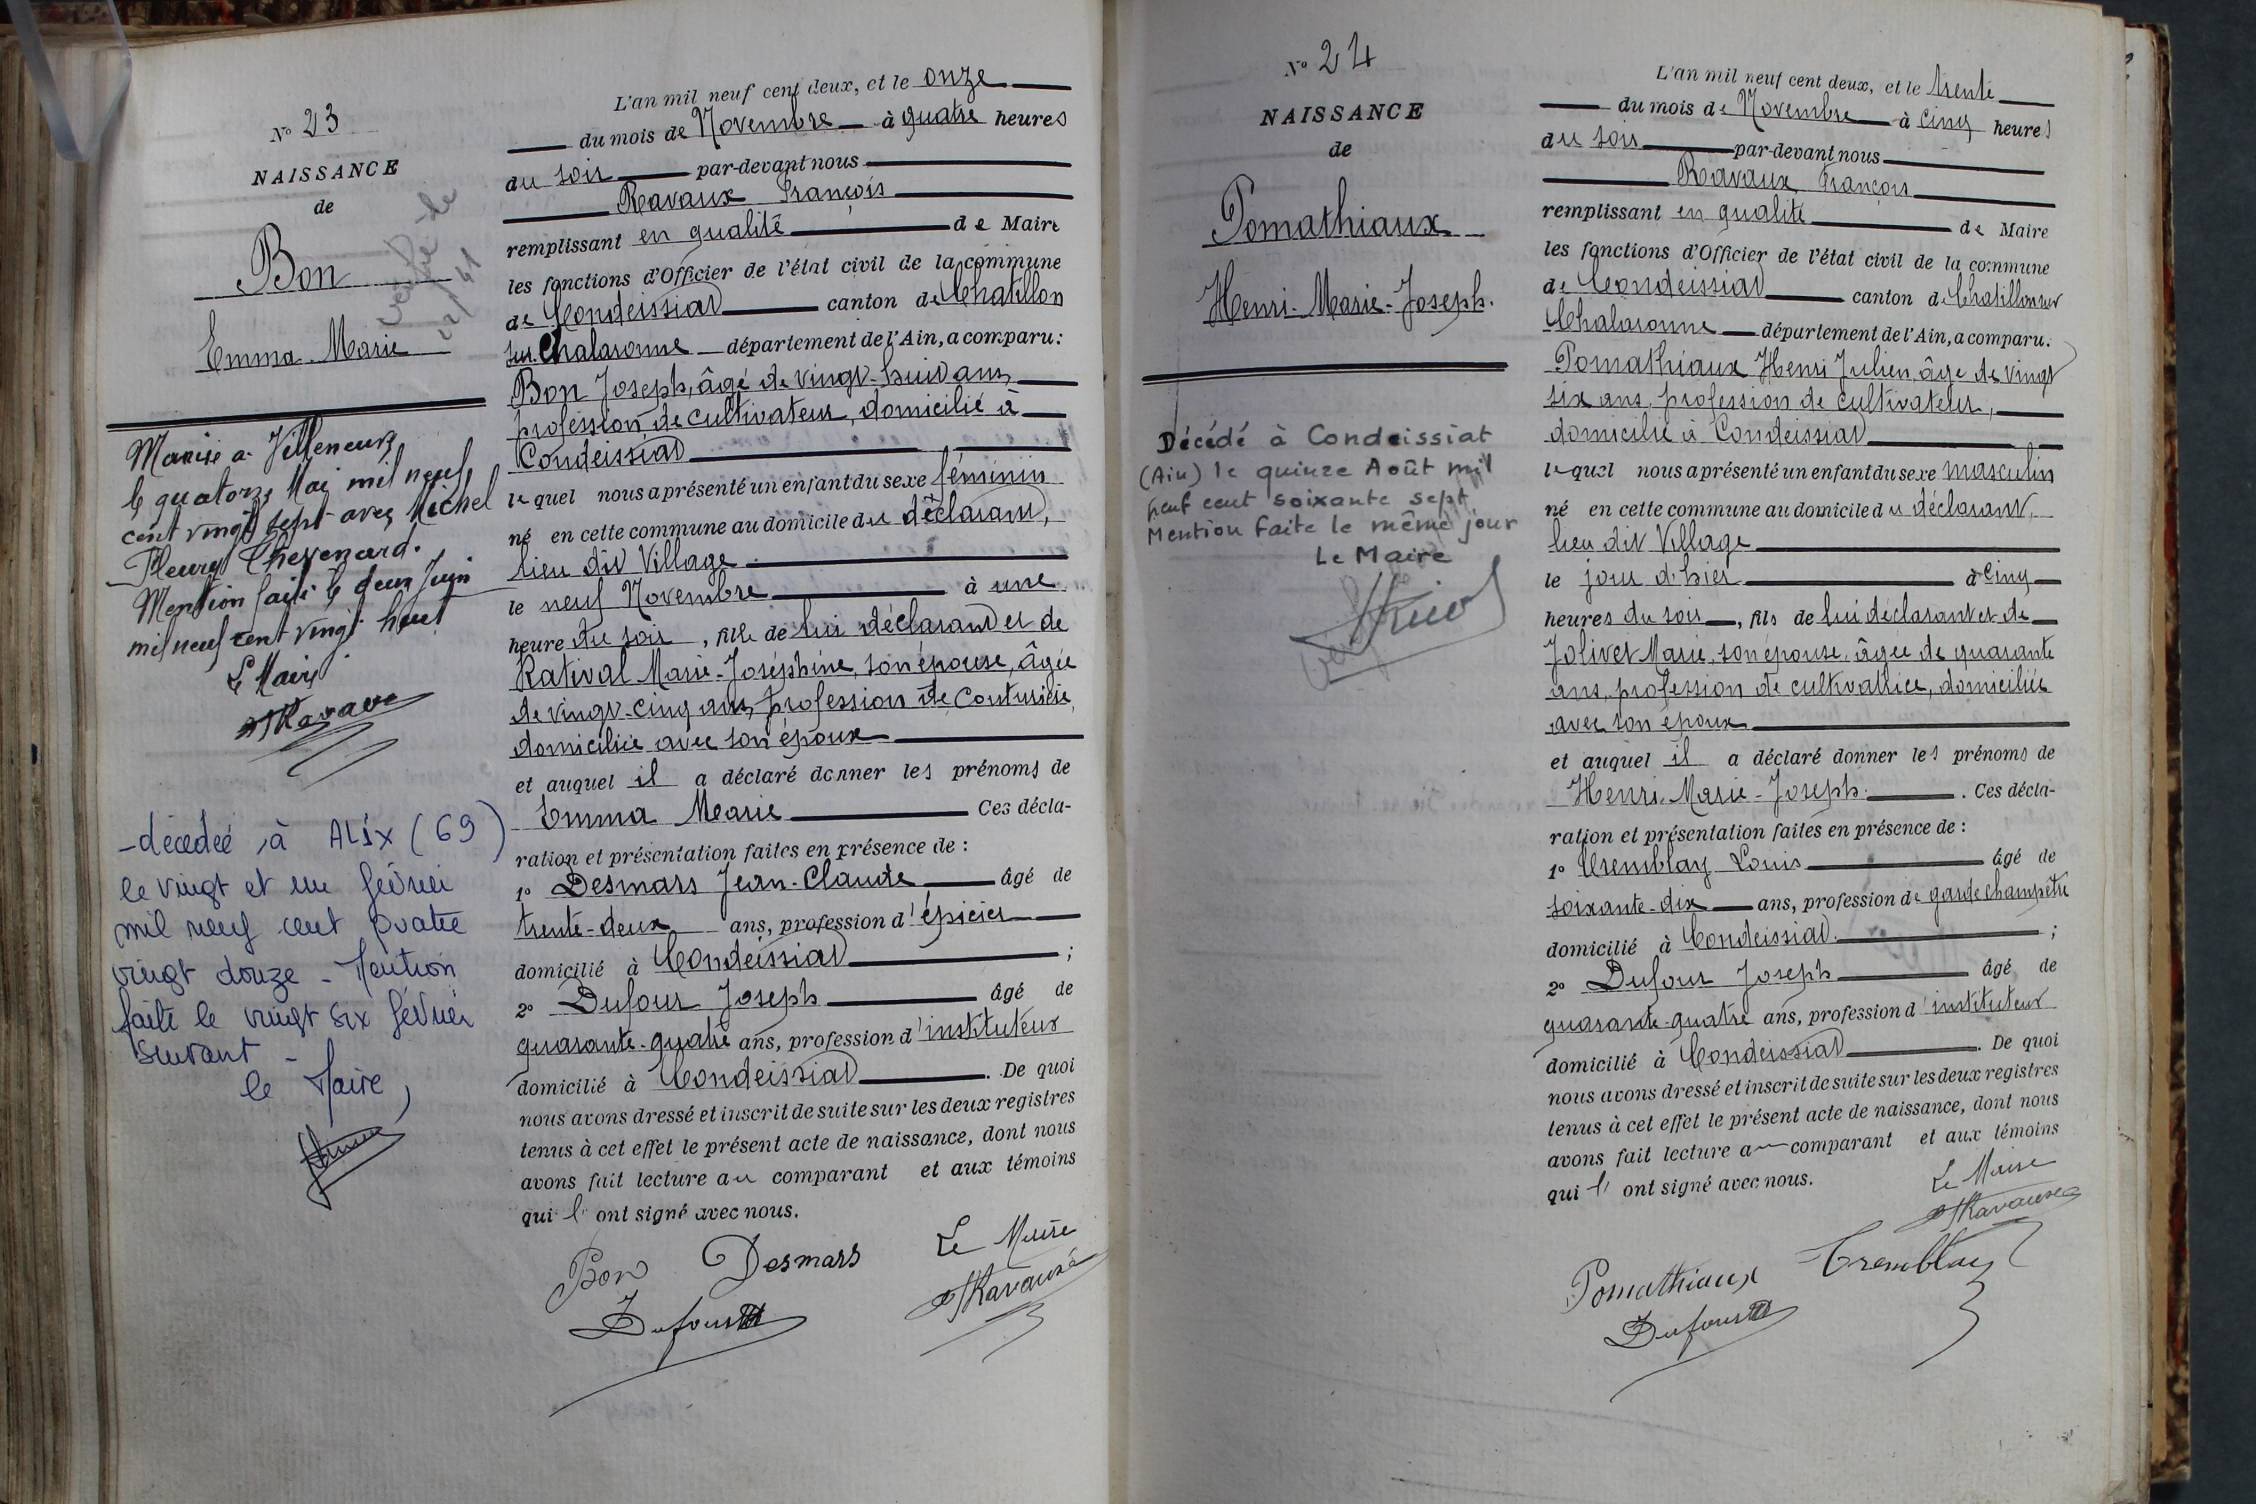 N° 23
NAISSANCE
de
Bon
Emma Marie
Marié à Villeneuve
le quatorze Mai mil neuf
cent vingt sept avec Michel
Fleury Chevenard.
Mention faite le deux Juin
mil neuf cent vingt huit
Le Maire
Ravaux
- décédée à ALIX (69)
le vingt et un février
mil neuf cent quatre
vingt douze - Mention
faite le vingt six février
suivant -
le Maire,
L'an mil neuf cent deux, et le onze
du mois de Novembre à quatre heures
du soir par-devant nous
Ravaux François
remplissant en qualité de Maire
les fonctions d'Officier de l'état civil de la commune
de Condeissiat canton de Chatillon
sur Chalaronne département de l'Ain, a comparu:
Bon Joseph, âgé de vingt-huit ans,
profession de cultivateur, domicilié à
Condeissiat
lequel nous a présenté un enfant du sexe féminin
né en cette commune au domicile du déclarant,
lieu dit Village
le neuf Novembre à une
heure du soir, fille de lui déclarant et de
Rativat Marie-Joséphine, son épouse, âgée
de vingt-cinq ans, profession de Couturière,
domiciliée avec son époux
et auquel il a déclaré donner les prénoms de
Emma Marie Ces décla-
ration et présentation faites en présence de :
1° Desmars Jean-Claude âgé de
trente-deux ans, profession d'épicier
domicilié à Condeissiat ;
2° Dufour Joseph âgé de
quarante-quatre ans, profession d'instituteur
domicilié à Condeissiat. De quoi
nous avons dressé et inscrit de suite sur les deux registres
tenus à cet effet le présent acte de naissance, dont nous
avons fait lecture au comparant et aux témoins
qui l'ont signé avec nous.
Bon Desmars Le Maire
Dufour Ravaux
N° 24
NAISSANCE
de
Pomathiaux
Henri-Marie-Joseph.
Décédé à Condeissiat
(Ain) le quinze Août mil
neuf cent soixante sept
Mention faite le même jour
Le Maire
L'an mil neuf cent deux, et le trente
du mois de Novembre à cinq heures
du soir par-devant nous
Ravaux François
remplissant en qualité de Maire
les fonctions d'Officier de l'état civil de la commune
de Condeissiat canton de Chatillon sur
Chalaronne département de l'Ain, a comparu.
Pomathiaux Henri Julien, âgé de vingt
six ans, profession de cultivateur,
domicilié à Condeissiat
lequel nous a présenté un enfant du sexe masculin
né en cette commune au domicile du déclarant,
lieu dit Village
le jour d'hier à cinq
heures du soir, fils de lui déclarant et de
Jolivet Marie, son épouse, âgée de quarante
ans, profession de cultivatrice, domiciliée
avec son époux
et auquel il a déclaré donner les prénoms de
Henri-Marie-Joseph. Ces décla-
ration et présentation faites en présence de :
1° Tremblay Louis âgé de
soixante-dix ans, profession de garde champêtre
domicilié à Condeissiat. ;
2° Dufour Joseph âgé de
quarante-quatre ans, profession d'instituteur
domicilié à Condeissiat. De quoi
nous avons dressé et inscrit de suite sur les deux registres
tenus à cet effet le présent acte de naissance, dont nous
avons fait lecture au comparant et aux témoins
qui l'ont signé avec nous.
Le Maire
Ravaux
Pomathiaux Tremblay
Dufour